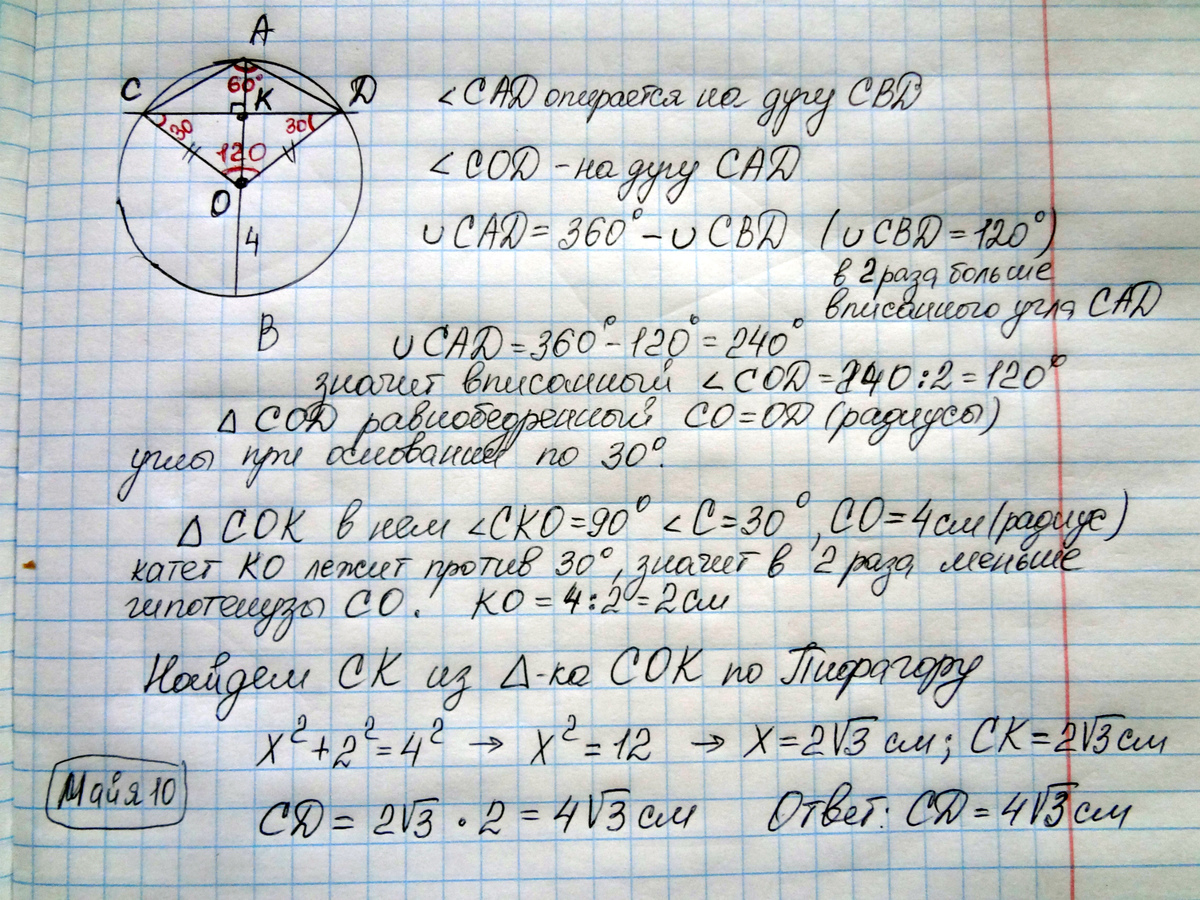 A
C
60°
K
D
30
30
120
O
4
B
∠CAD опирается на дугу CBD
∠COD - на дугу CAD
∪ CAD = 360° - ∪ CBD (∪ CBD = 120°)
в 2 раза больше
вписанного угла CAD
∪ CAD = 360° - 120° = 240°
значит вписанный ∠COD = 240 : 2 = 120°
△ COD равнобедренный CO = OD (радиусы)
углы при основании по 30°.
△ COK в нем ∠CKO = 90° ∠C = 30°, CO = 4 см (радиус)
катет KO лежит против 30°, значит в 2 раза меньше
гипотенузы CO. KO = 4 : 2 = 2 см
Найдем CK из △-ка COK по Пифагору
x² + 2² = 4² → x² = 12 → x = 2√3 см; CK = 2√3 см
Майя 10
CD = 2√3 · 2 = 4√3 см Ответ: CD = 4√3 см